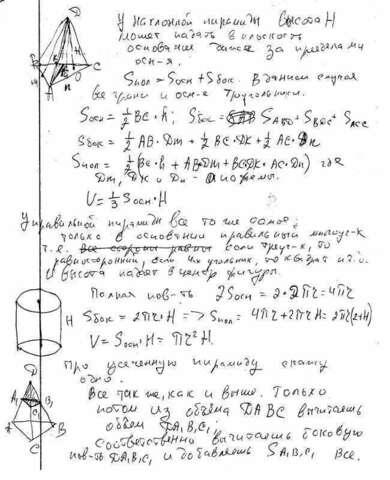 У наклонной пирамиды высота H
может падать в плоскость
основания также за пределами
осн-я.
Sпол = Sосн + Sбок. В данном случая
все грани и осн-е треугольники.
Sосн = 1/2 BC·h; Sбок = SABD + SBDC + SACC
Sбок = 1/2 AB·Dm + 1/2 BC·DK + 1/2 AC·Dn
Sпол = 1/2 (BC·h + AB·Dm + BC·DK + AC·Dn) где
Dm, DK и Dn - апофемы.
V = 1/3 Sосн·H
У правильной пирамиды все то же самое,
только в основании правильный многоуг-к
т.е. все стороны равны если треуг-к, то
равносторонний, если 4х угольник, то квадрат и т.д.
и высота падает в центр фигуры.
Полная пов-ть 2Sосн = 2·2πr = 4πr
Sбок = 2πr·H => Sпол = 4πr + 2πrH = 2πr(2+H)
V = Sосн·H = πr²H.
Про усеченную пирамиду скажу
одно.
Все так же, как и выше. Только
потом из объема DABC вычитаешь
объем DA₁B₁C₁
соответственно вычитаешь боковую
пов-ть DA₁B₁C₁ и добавляешь SA₁B₁C₁ Все.